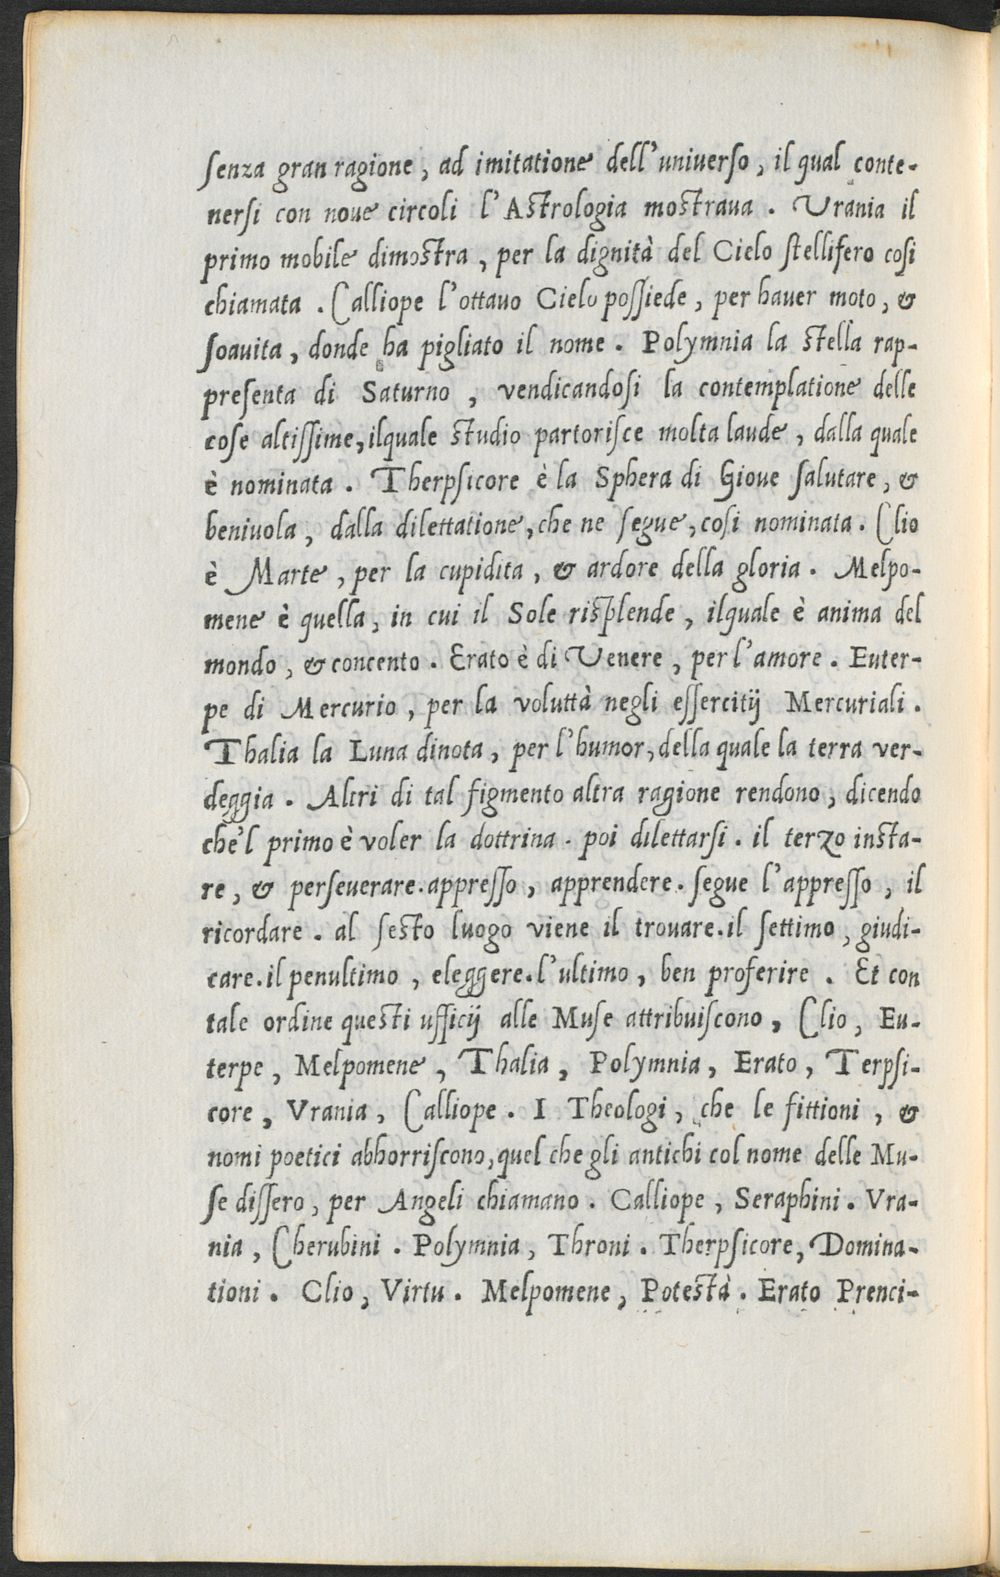 ſenza gran ragione, ad imitatione dell'uniuerſo, il qual conte-
nerſi con noue circoli l'Aſtrologia moſtraua. Vrania il
primo mobile dimoſtra, per la dignità del Cielo ſtellifero coſi
chiamata. Calliope l'ottauo Cielo poſſiede, per hauer moto, &
ſoauita, donde ha pigliato il nome. Polymnia la ſtella rap-
preſenta di Saturno, vendicandoſi la contemplatione delle
coſe altiſſime, ilquale ſtudio partoriſce molta laude, dalla quale
è nominata. Therpſicore è la Sphera di Gioue ſalutare, &
beniuola, dalla dilettatione, che ne ſegue, coſi nominata. Clio
è Marte, per la cupidita, & ardore della gloria. Melpo-
mene è quella, in cui il Sole riſplende, ilquale è anima del
mondo, & concento. Erato è di Venere, per l'amore. Euter-
pe di Mercurio, per la voluttà negli eſſercitij Mercuriali.
Thalia la Luna dinota, per l'humor, della quale la terra ver-
deggia. Altri di tal figmento altra ragione rendono, dicendo
che'l primo è voler la dottrina. poi dilettarſi. il terzo inſta-
re, & perſeuerare. appreſſo, apprendere. ſegue l'appreſſo, il
ricordare. al ſeſto luogo viene il trouare. il ſettimo, giudi-
care. il penultimo, eleggere. l'ultimo, ben proferire. Et con
tale ordine queſti ufficij alle Muſe attribuiſcono, Clio, Eu-
terpe, Melpomene, Thalia, Polymnia, Erato, Terpſi-
core, Vrania, Calliope. I Theologi, che le fittioni, &
nomi poetici abhorriſcono, quel che gli antichi col nome delle Mu-
ſe diſſero, per Angeli chiamano. Calliope, Seraphini. Vra-
nia, Cherubini. Polymnia, Throni. Therpſicore, Domina-
tioni. Clio, Virtu. Melpomene, Poteſtà. Erato Prenci-